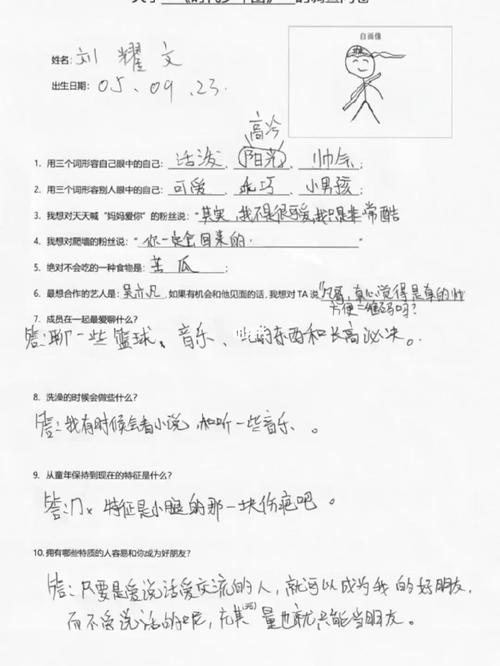 姓名: 刘 耀 文
自画像
出生日期: 05、09、23.
高冷
1. 用三个词形容自己眼中的自己: 活泼、 阳光、 帅气;
2. 用三个词形容别人眼中的自己: 可爱、 乖巧、 小男孩;
3. 我想对天天喊“妈妈爱你”的粉丝说: “其实,我不是很可爱,我只是非常酷
4. 我想对爬墙的粉丝说: “你一定会回来的.
5. 绝对不会吃的一种食物是: 苦瓜;
6. 最想合作的艺人是: 吴亦凡, 如果有机会和他见面的话, 我想对 TA 说“凡哥,真心觉得是真的帅
方便一维码吗?
7. 成员在一起最爱聊什么?
答:聊一些篮球、音乐、吃的东西和长高必决。
8. 洗澡的时候会做些什么?
答:我有时候会看小说,和听一些音乐、。
9. 从童年保持到现在的特征是什么?
答:门x 特征是小腿的那一块伤疤吧。
10. 拥有哪些特质的人容易和你成为好朋友?
答:只要是爱说话爱交流的人,就可以成为我的好朋友,
而不爱说话的呢,充其量也就只能当朋友。